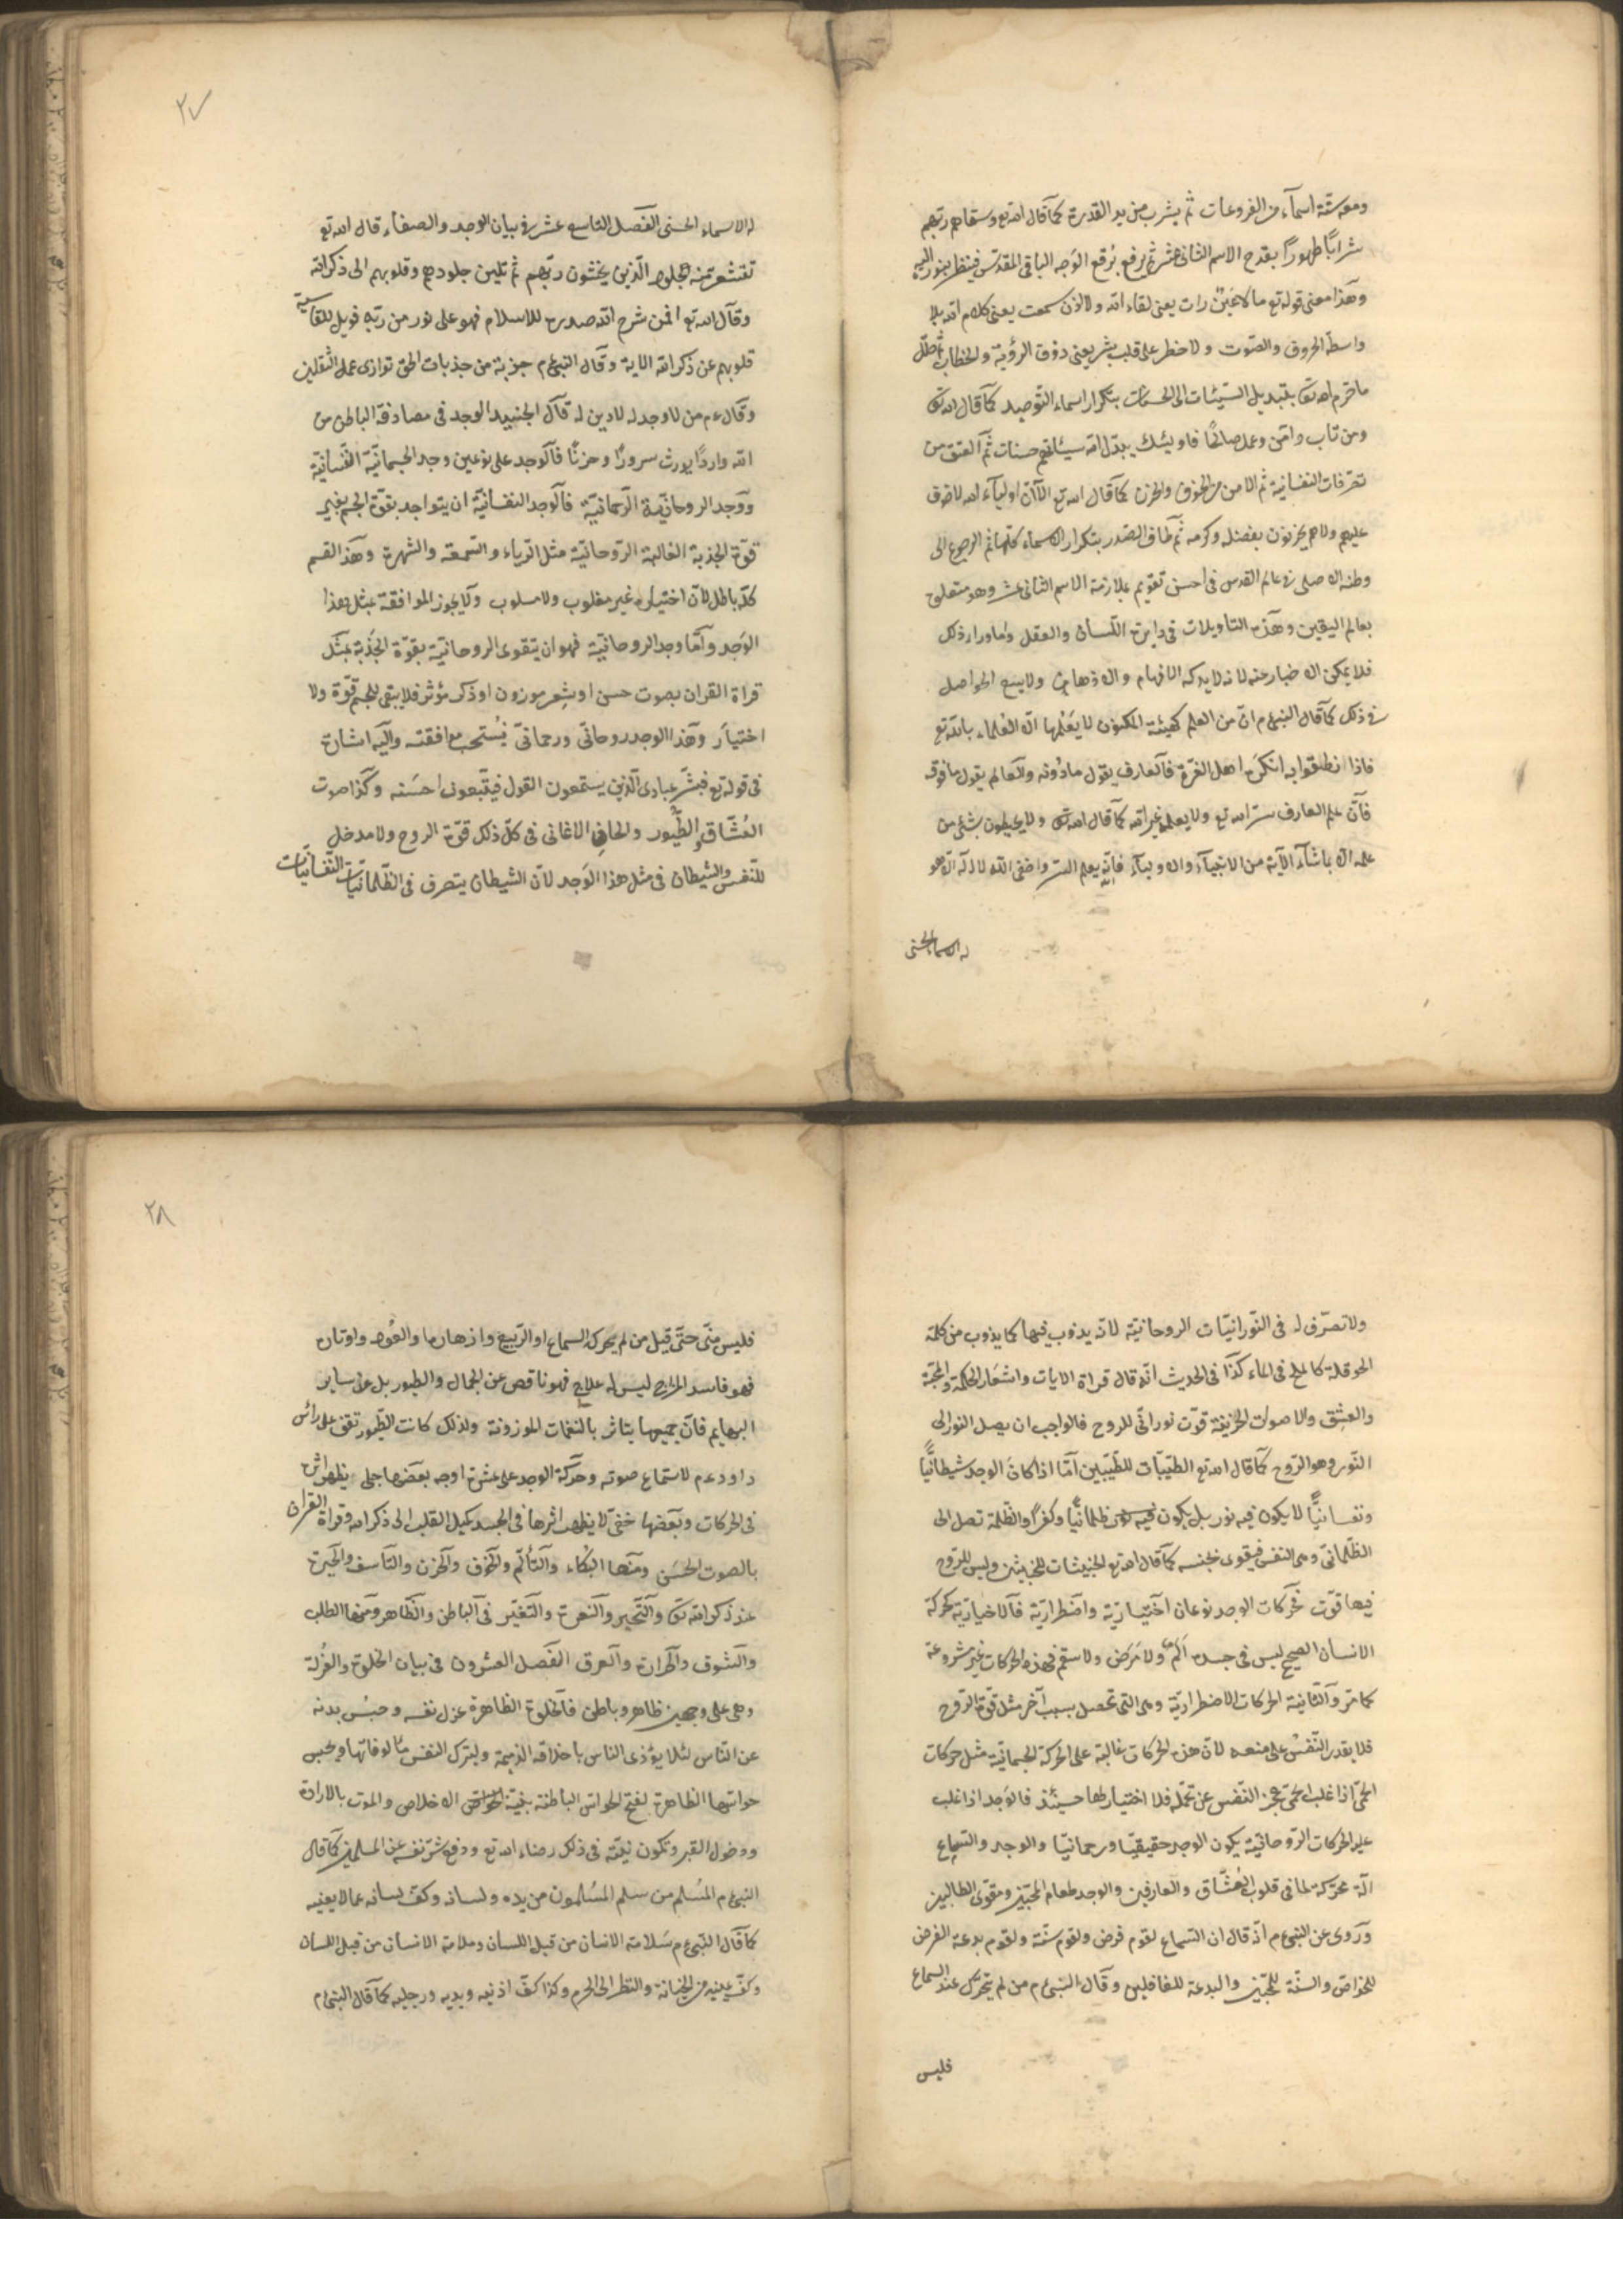 ومعه ستة اسمآء من الفروعات ثم يشرب من يد القدرة كمآ قال الله تع وسقاهم ربهم
شرابًا طهورًا بقدح الاسم الثانى عشر ثم يرفع برقع الوَجه الباقى المقدّس فينظر بنوره اليه
وهٓذا معنى قوله تع ما لا عَينٌ رات يعنى لقاء الله ولا اذن سمعت يعنى كلام الله بلا
واسطة الحروف والصّوت ولا خطر على قلب بشر يعنى ذوق الرؤية والخطاب ثم
ما حرم الله تعٓ بتبديل السيّئات الى الحسنات بتكرار اسماء التّوحيد كمآ قال الله تعٓ
ومن تاب وامَن وعمل صالحًا فاوليئك يبدّل الله سيئاتهم حسنات ثم العتق من
تصرّفات النفسانية ثم الامن من الخوف والحزن كمآ قال الله تع الآ انّ اوليآء الله لا خوف
عليهم ولا هم يحزنون بفضله وكرمه ثم طاف الصّدر بتكرار الاسماء كلّها ثم الرجوع الى
وطنه الاصلى فى عالم القدس فى احسن تقويم بملازمة الاسم الثانى عشر وهو متعلق
بعالم اليقين وهٓذه التاويلات فى دايرة اللّسان والعقل وامّا وراء ذلك
فلا يمكن الاخبار عنه لانه لا يدركه الافهام والاذهان ولا يسع الحواصل
فى ذلك كمآ قال النبى ءم انّ من العلم كهيئة المكنون لا يَعْلمها الا العُلماء بالله تع
فاذا نطقوا به انكرَه اهل الغرّة فآلعارف يقول ما دُونه والعالم يقول ما فوقه
فآنّ علم العارف سرّ الله تع ولا يعلمه غير الله كمآ قال الله تعٓ ولا يحيطون بشئ من
علمه الا بما شآء الآية من الانبيآء والاوليآء فانّه يعلم السرّ واخفى الله لا اله الا هو
له الاسماء الحسنى
٢٧
له الاسماء الحسنى الفَصل التاسع عشر فى بيان الوجد والصفآء قال الله تع
تقشعر منه جلود الّذين يخشون ربّهم ثم تلين جلودهم وقلوبهم الى ذكر الله
وقال الله تع افمن شرح الله صدره للاسلام فهو على نور من ربّه فويل للقاسية
قلوبهم عن ذكر الله الاية وقال النبى ءم جزبة من جذبات الحق توازى عمل الثّقلين
وقال ءم من لا وجد له لا دين له قآل الجنييد الوجد فى مصادفة الباطن من
الله واردًا يورث سرورًا وحزنًا فآلوجد على نوعين وجد الجسمانيّة النّفسانيّة
ووَجد الروحانيّة الرّحمانيّة فآلوَجد النفسانيّة ان يتواجد بقوّة الجسم بغير
قوّة الجذبة الغالبة الرّوحانيّة مثل الرّياء والسّمعة والشهرة وهٓذا القسم
كلّه باطل لانّ اختياره غير مغلوب ولا مسلوب ولآ يجوز الموافقة بمثل هذا
الوَجد وآمّا وجد الروحانيّة فهو ان يتقوى الروحانيّة بقوّة الجَذبة بمثل
قراة القران بصوت حسن او بشعر موزون او ذكر مؤثر فلا يبقى للجسم قوّة ولا
اختيار وهٓذا الوجد روحانىّ ورحمانىّ يُستحبّ موافقته وآليه اشارة
فى قوله تع فبشّر عبادى الّذين يستمعون القول فيتّبعون احسَنه وكٓذا صوت
العُشّاق والطُّيور والحان الاغانى فى كلّ ذلك قوّة الروح ولا مدخل
للنّفس والشيطان فى مثل هذا الوَجد لانّ الشيطان يتصرف فى الظّلمانيّات النّفسانيّات
ولا تصرّف له فى النّورانيّات الروحانيّة لانّه يذوب فيها كما يذوب من كلمة
الحوقلة كالملح فى الماء كذٓا فى الحديث انّه قال قراة الايات واشعَار الحكمة والمحبّة
والعشِق والاصوات الحزينة قوّت نورانىّ للروح فالواجب ان يصل النور الى
النّور وهو الرّوح كمآ قال الله تع الطيّبات للطّيّبين آمّا اذا كانَ الوجد شيطانيًّا
ونفسانيًّا لا يكون فيه نور بل يكون فيه ظلمانيًّا وكفرًا والظّلمة تصل الى
الظّلمانىّ وهى النفس فيقوى بجنسه كمآ قال الله تع الخبيثات للخبيثين وليس للرّوح
فيها قوّت فحركات الوجد نوعان آختياريّة واضطراريّة فآلاختياريّة كحركة
الانسان الصحيح ليس فى جسده اَلم ولا مَرَض ولا سقم فهذه الحركات غير مشروعة
كما مرّ وآلثّانية الحركات الاضطراريّة وهى التى تحصل بسبب آخر مثل قوّة الرّوح
فلا يقدر النّفسُ على منعه لانّ هذه الحركات غالبة على الحركة الجسمانيّة مثل حركات
الحمّى اذا غلب الحمى عجز النّفس عن تحمّله فلا اختيار لها حينئذ فالوَجد اذا غلب
عليه الحركات الرّوحانيّة يكون الوجد حقيقيًّا ورحمانيًّا والوجد والسّماع
آلة محرّكة لما فى قلوب العُشّاق والعارفين والوجد طعام المحبّين ومقوّى الطالبين
ورَوى عن النبى ءم انّه قال ان السّماع لقوم فرض ولقوم سنّة ولقوم بدعة الفرض
للخواصّ والسنّة للمحبّين والبدعة للغافلين وقال النبى ءم من لم يتحرّك عند السماع
فليس
٢٨
فليس منّى حتّى قيل من لم يحركه السماع او الرّبيع وازهارها والعُود واوتاره
فهو فاسد المزاج ليس له علاج فهو ناقص عن الجمال والطيور بل عن ساير
البهايم فانّ جميعها يتاثر بالنغمات الموزونة ولذلك كانت الطّيور تقف على رائس
داود ءم لاستماع صوته وحركة الوجد على عشرة اوجه بعَضها جلى يظهر اثره
فى الحركات وبَعضها خفىّ لا يظهر اثرها فى الجسد كميل القلب الى ذكر الله وقراة القران
بالصوت الحسَن ومنها البُكاء وآلتألّم وآلخوف وآلحزن والتآسف والحيرة
عند ذكر الله تعٓ وآلتّحير وآلنعرة والتّغيّر فى الباطن وآلظّاهر ومنها الطلب
والشوق وآلحرارة وآلعرق الفَصل العشرون فى بيان الخلوة والعُزلة
وهى على وجهين ظاهر وباطن فآلخلوة الظاهرة عزل نفسه وحبسُ بدنه
عن النّاس لئلا يؤذى الناس باخلاقه الذميمة وليترك النفس مألوفاتها ويحبس
حواسّها الظاهرة لفتح الحواسّ الباطنة بنيّة الاخلاص والموت بالارادة
ودخول القبر وتكون نيّته فى ذلك رضاء الله تع ودفع شرّ نفسه عن المسلمين كمآ قال
النبى ءم المُسلم من سلم المسُلمون من يده ولسانه وكفّ لسانه عمّا لا يعنيه
كمآ قال النبى ءم سَلامة الانسان من قبل اللسان وملامة الانسان من قبل اللسان
وكفّ عينيه من الخيانة والنظر الى الحرم وكذا كفّ اذنيه ويديه ورجليه كمآ قال النبى ءم